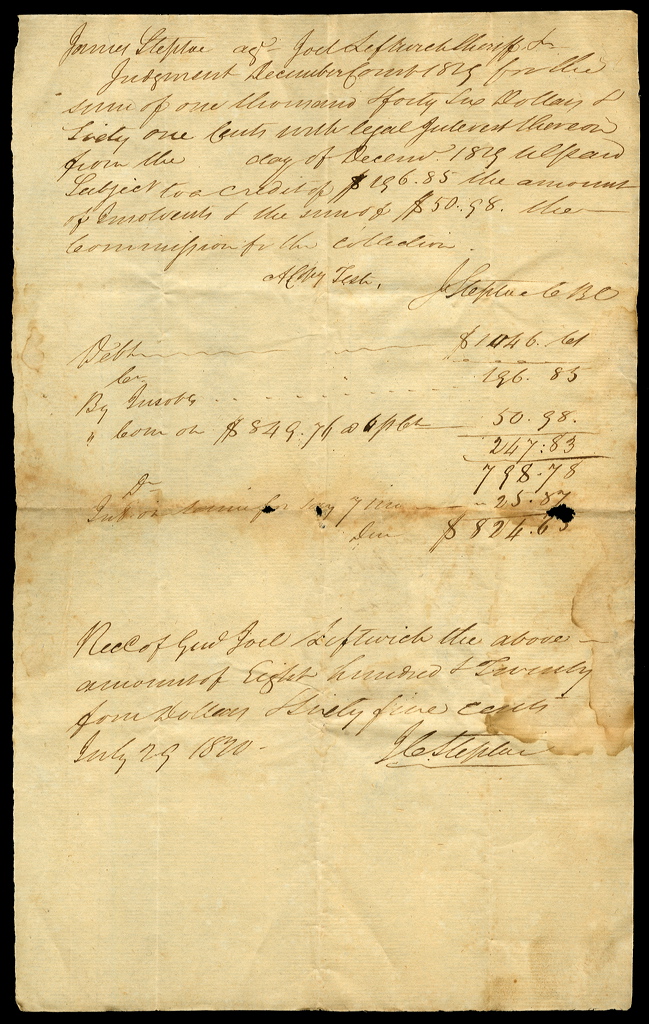 James Steptoe agt Joel Leftwich Sheriff &c
Judgment December Court 1819 for the
sum of one thousand & forty six Dollars &
Sixty one Cents with legal Interest thereon
from the day of Decemr. 1819 till paid
Subject to a credit of $196.85 the amount
of Insolvents & the sum of $50.98. the
Commission for the collection.
A Copy Teste,
J Steptoe C B C
Debt $1046.61
Cr
By Insolvs 196.85
" Com on $849.76 @ 6 p Ct 50.98.
247:83
798.78
Dr
Int on same for 7 mo 25.87
Due $824.65
Recd of Genl Joel Leftwich the above
amount of Eight hundred & Twenty
four Dollars & Sixty five cents
July 29 1820.
J C Steptoe